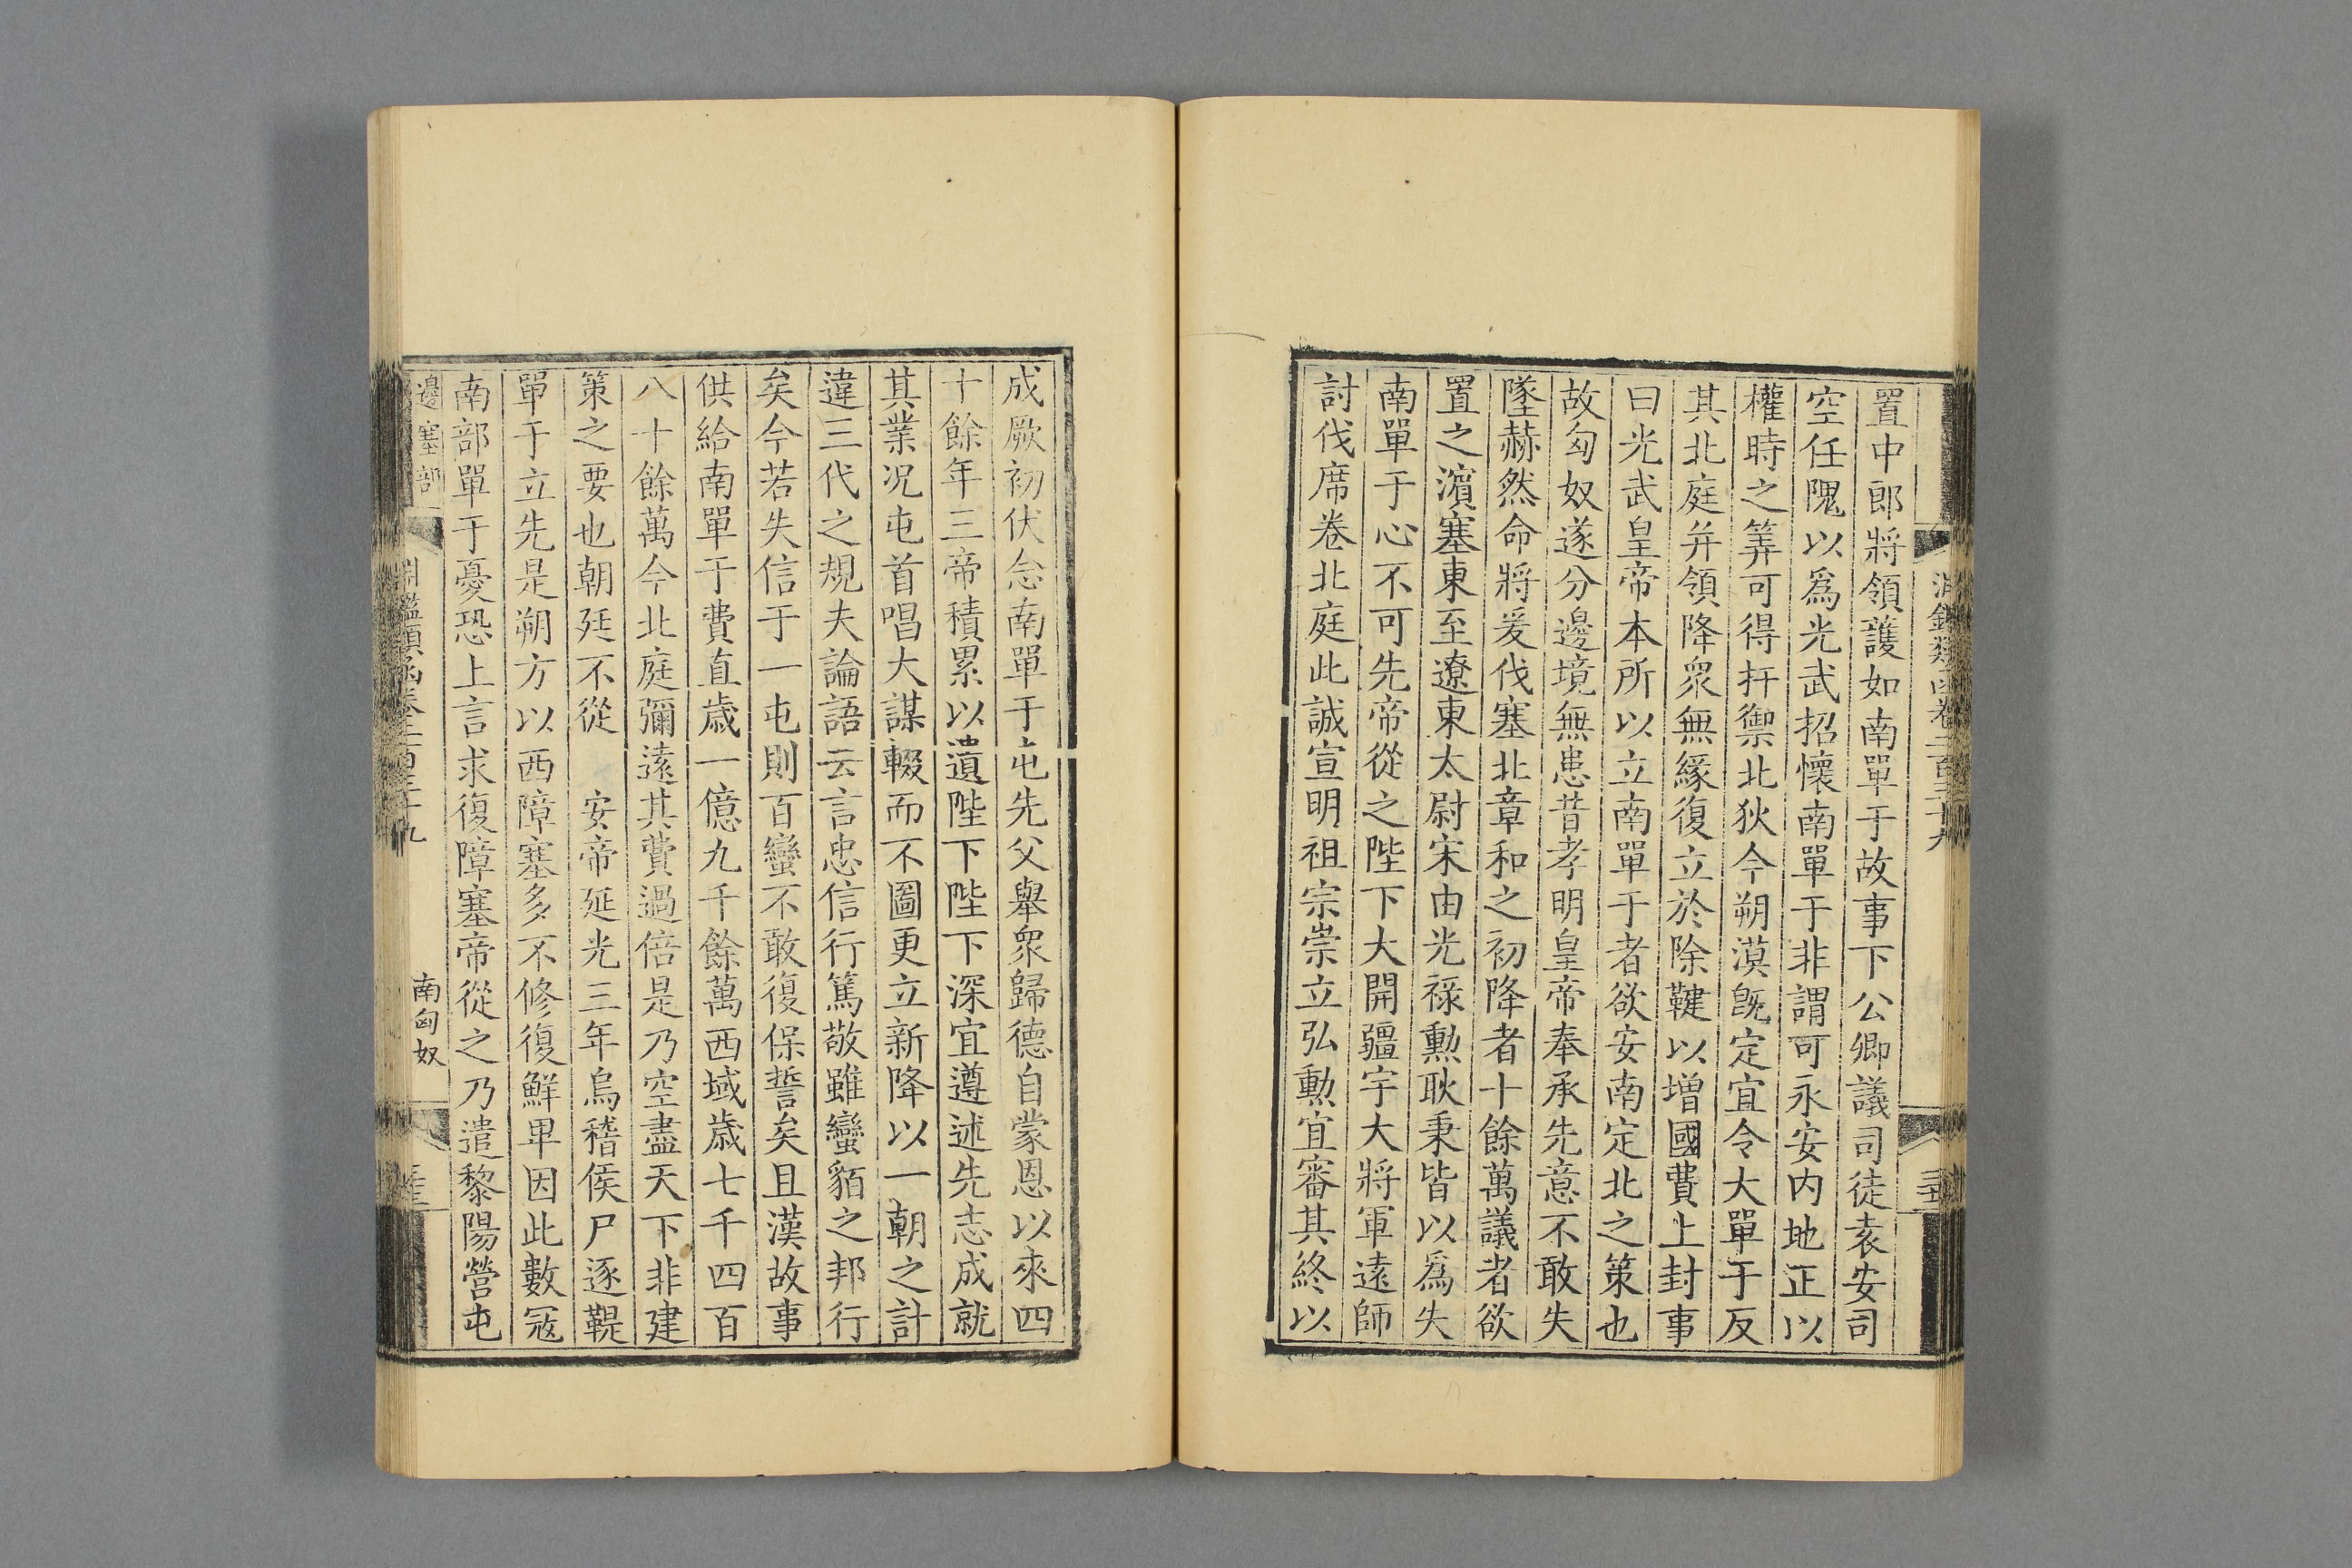 置中郎將領護如南單于故事下公卿議司徒袁安司
空任隗以爲光武招懷南單于非謂可永安内地正以
權時之筭可得扞禦北狄今朔漠旣定宜令大單于反
其北庭并領降衆無緣復立於除鞬以增國費上封事
曰光武皇帝本所以立南單于者欲安南定北之策也
故匈奴遂分邊境無患昔孝明皇帝奉承先意不敢失
墜赫然命將爰伐塞北章和之初降者十餘萬議者欲
置之濵塞東至遼東太尉宋由光祿勲耿秉皆以爲失
南單于心不可先帝從之陛下大開疆宇大將軍遠師
討伐席卷北庭此誠宣明祖宗崇立弘勲宜審其終以
成厥初伏念南單于屯先父舉衆歸德自蒙恩以來四
十餘年三帝積累以遺陛下陛下深宜遵述先志成就
其業况屯首唱大謀輟而不圖更立新降以一朝之計
違三代之規夫論語云言忠信行篤敬雖蠻貊之邦行
矣今若失信于一屯則百蠻不敢復保誓矣且漢故事
供給南單于費直歲一億九千餘萬西域歲七千四百
八十餘萬今北庭彌遠其費過倍是乃空盡天下非建
策之要也朝廷不從　安帝延光三年烏稽侯尸逐鞮
單于立先是朔方以西障塞多不修復鮮卑因此數冦
南部單于憂恐上言求復障塞帝從之乃遣黎陽營屯
邊塞部
南匈奴